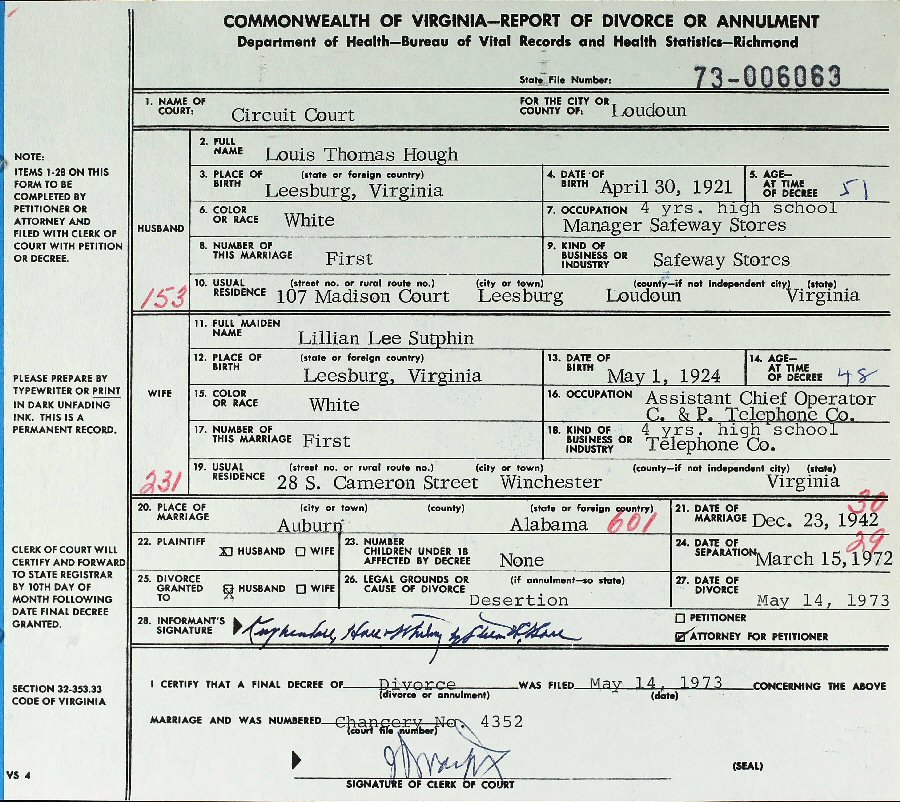 COMMONWEALTH OF VIRGINIA—REPORT OF DIVORCE OR ANNULMENT
Department of Health—Bureau of Vital Records and Health Statistics—Richmond
State File Number: 73-006063
1. NAME OF COURT: Circuit Court FOR THE CITY OR COUNTY OF: Loudoun
NOTE:
ITEMS 1-28 ON THIS
FORM TO BE
COMPLETED BY
PETITIONER OR
ATTORNEY AND
FILED WITH CLERK OF
COURT WITH PETITION
OR DECREE.
HUSBAND
153
2. FULL NAME Louis Thomas Hough
3. PLACE OF BIRTH (state or foreign country) Leesburg, Virginia 4. DATE OF BIRTH April 30, 1921 5. AGE— AT TIME OF DECREE 51
6. COLOR OR RACE White 7. OCCUPATION 4 yrs. high school
Manager Safeway Stores
8. NUMBER OF THIS MARRIAGE First 9. KIND OF BUSINESS OR INDUSTRY Safeway Stores
10. USUAL RESIDENCE (street no. or rural route no.) (city or town) (county—if not independent city) (state)
107 Madison Court Leesburg Loudoun Virginia
PLEASE PREPARE BY
TYPEWRITER OR PRINT
IN DARK UNFADING
INK. THIS IS A
PERMANENT RECORD.
WIFE
231
11. FULL MAIDEN NAME Lillian Lee Sutphin
12. PLACE OF BIRTH (state or foreign country) Leesburg, Virginia 13. DATE OF BIRTH May 1, 1924 14. AGE— AT TIME OF DECREE 48
15. COLOR OR RACE White 16. OCCUPATION Assistant Chief Operator
C. & P. Telephone Co.
17. NUMBER OF THIS MARRIAGE First 18. KIND OF BUSINESS OR INDUSTRY 4 yrs. high school
Telephone Co.
19. USUAL RESIDENCE (street no. or rural route no.) (city or town) (county—if not independent city) (state)
28 S. Cameron Street Winchester Virginia
20. PLACE OF MARRIAGE (city or town) (county) (state or foreign country) 21. DATE OF MARRIAGE 30
Auburn Alabama 601 Dec. 23, 1942
CLERK OF COURT WILL
CERTIFY AND FORWARD
TO STATE REGISTRAR
BY 10TH DAY OF
MONTH FOLLOWING
DATE FINAL DECREE
GRANTED.
22. PLAINTIFF X HUSBAND WIFE 23. NUMBER CHILDREN UNDER 18 AFFECTED BY DECREE None 24. DATE OF SEPARATION March 15, 1972 29
25. DIVORCE GRANTED TO X HUSBAND WIFE 26. LEGAL GROUNDS OR CAUSE OF DIVORCE (if annulment—so state) Desertion 27. DATE OF DIVORCE May 14, 1973
28. INFORMANT'S SIGNATURE PETITIONER
ATTORNEY FOR PETITIONER
SECTION 32-353.33
CODE OF VIRGINIA
I CERTIFY THAT A FINAL DECREE OF Divorce WAS FILED May 14, 1973 CONCERNING THE ABOVE
(divorce or annulment) (date)
MARRIAGE AND WAS NUMBERED Chancery No. 4352
(court file number)
(SEAL)
SIGNATURE OF CLERK OF COURT
VS 4